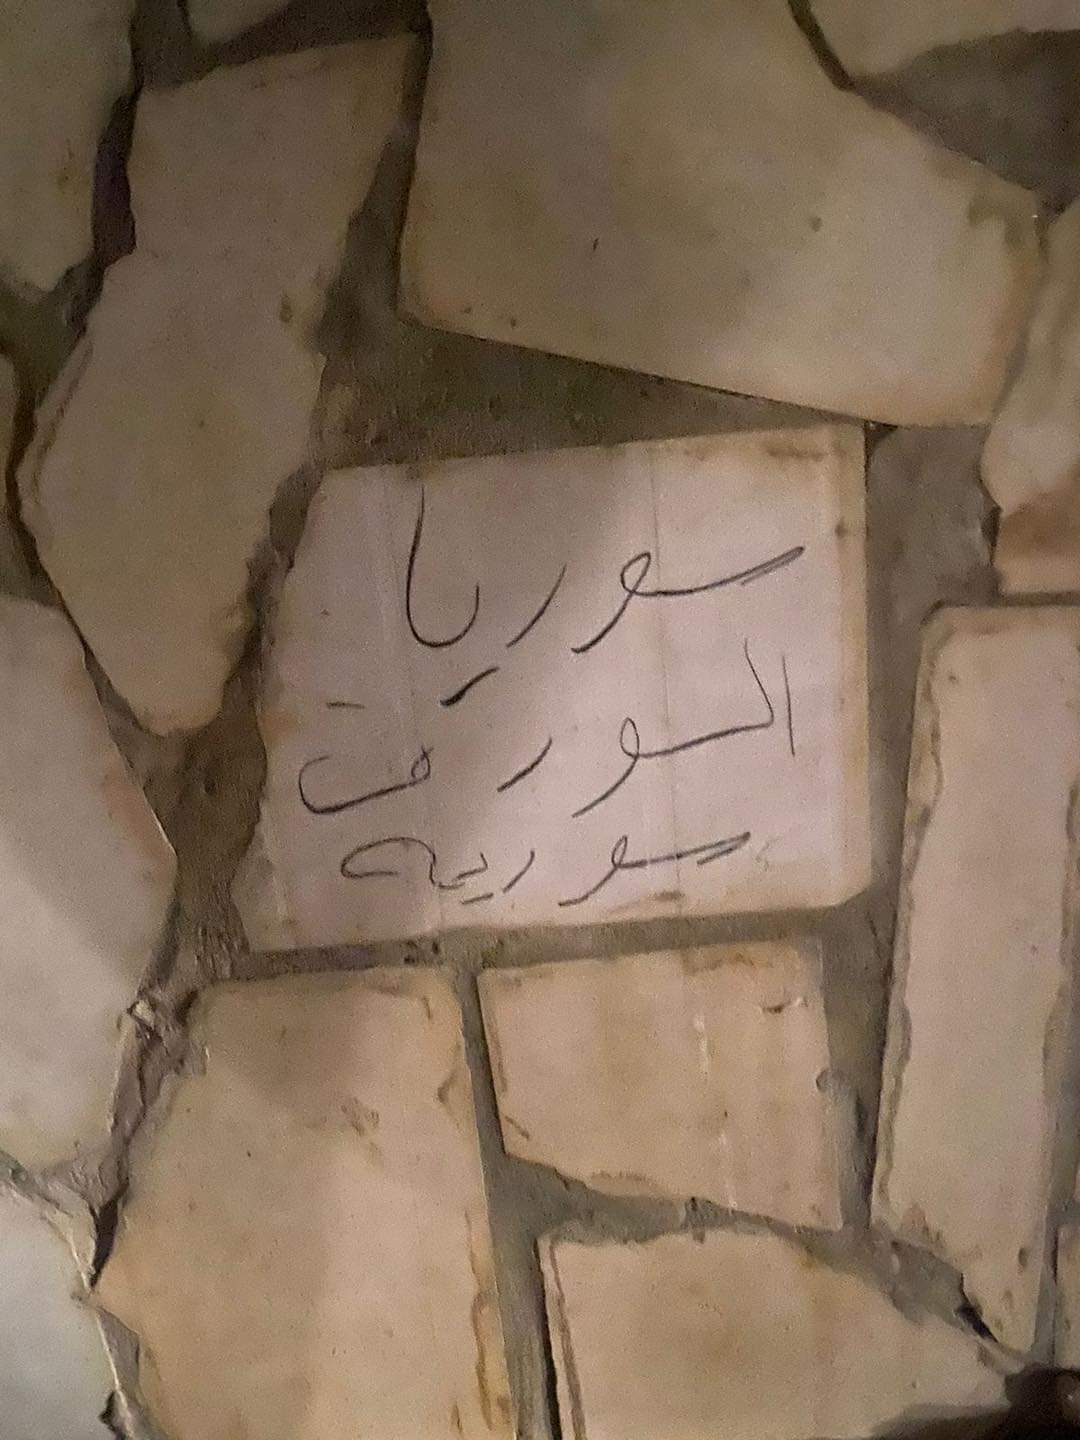 سوريا
السورقت
سوريه